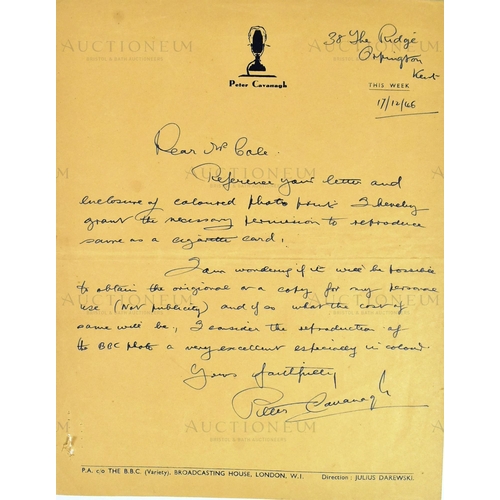 AUCTIONEUM
Peter Cavanagh
38 The Ridge
Orpington
Kent
THIS WEEK
17/12/46
Dear Mr Cale.
Reference your letter and
enclosure of coloured photo print I hereby
grant the necessary permission to reproduce
same as a cigarette card.
I am wondering if it will be possible
to obtain the origional or a copy for my personal
use (Not publicity) and if so what the cost of
same will be, I consider the reproduction of
the BBC photo a very excellent especially in colour
Yours faithfully
Peter Cavanagh
P.A. c/o THE B.B.C. (Variety), BROADCASTING HOUSE, LONDON, W.I.
Direction : JULIUS DAREWSKI.